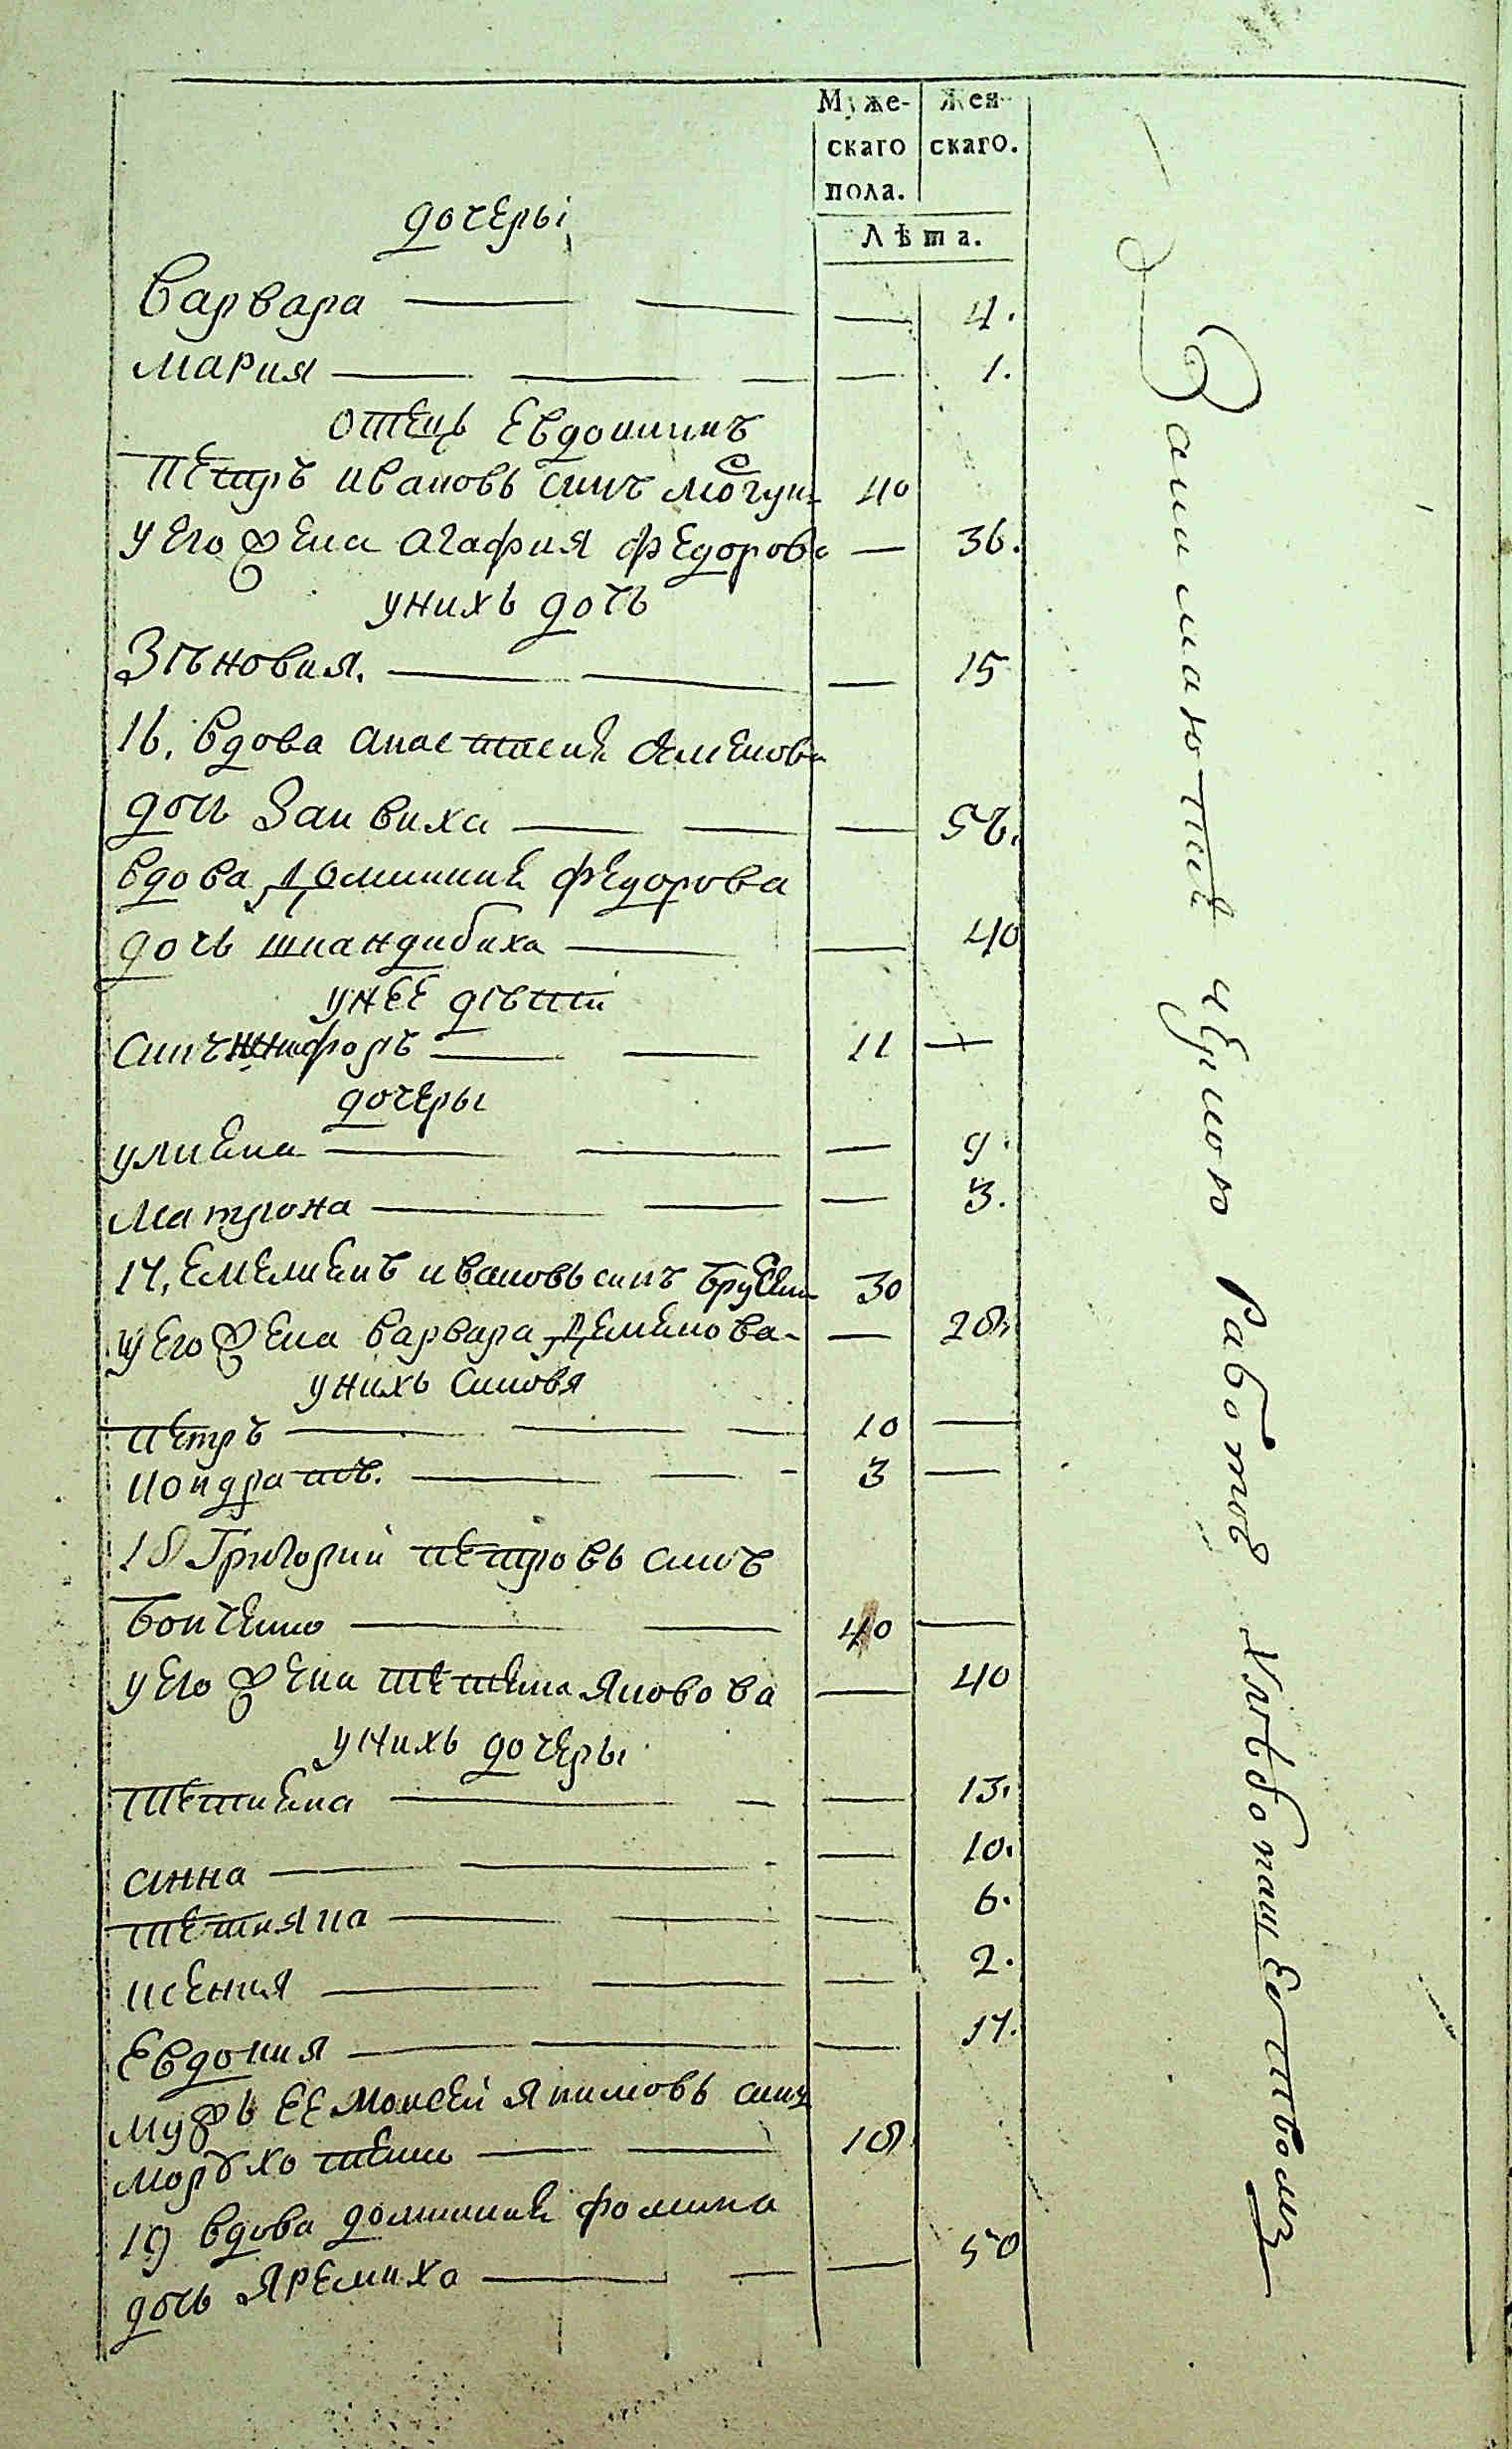 Муже- Жен-
скаго скаго.
пола.
Лѣта.
дочеры
Варвара — — — 4.
Мария — — — — 1.
отецъ Евдокиинъ
Петръ Ивановъ синъ 40
у Его жена Агафия Федорова — 36.
у нихъ дочь
Зѣновия. — — — 15
16, вдова Анастасия Семенова
дочь Заивиха — — — 56.
вдова Домникия Федорова
дочь шкандибиха — — 40
у нЕЕ дѣти
Синъ Никифоръ — — 11 —
дочеры
улияна — — — 9.
Матрона — — — 3.
17, Емелиянъ Ивановъ синъ 30
у Его жена Варвара Деменова — — 28,
у нихъ Синовя
Петръ — — — 10 —
Кондратъ. — — - 3 —
18 Григорий Петровъ синъ
Бойченко — — 40 —
у Его жена Тетяна Яковова — 40
у нихъ дочеры
Тетияна — — — 13.
анна — — - — 10.
Тетияна — — — 6.
Ксения — — — 2.
Евдокия — — — 17.
мужъ ЕЕ Моисей Якимовъ синъ
— — 18
19 вдова домникия Фомина
дочь Яремиха — — — 50
Занимаются черною работою хлѣбопашествомъ